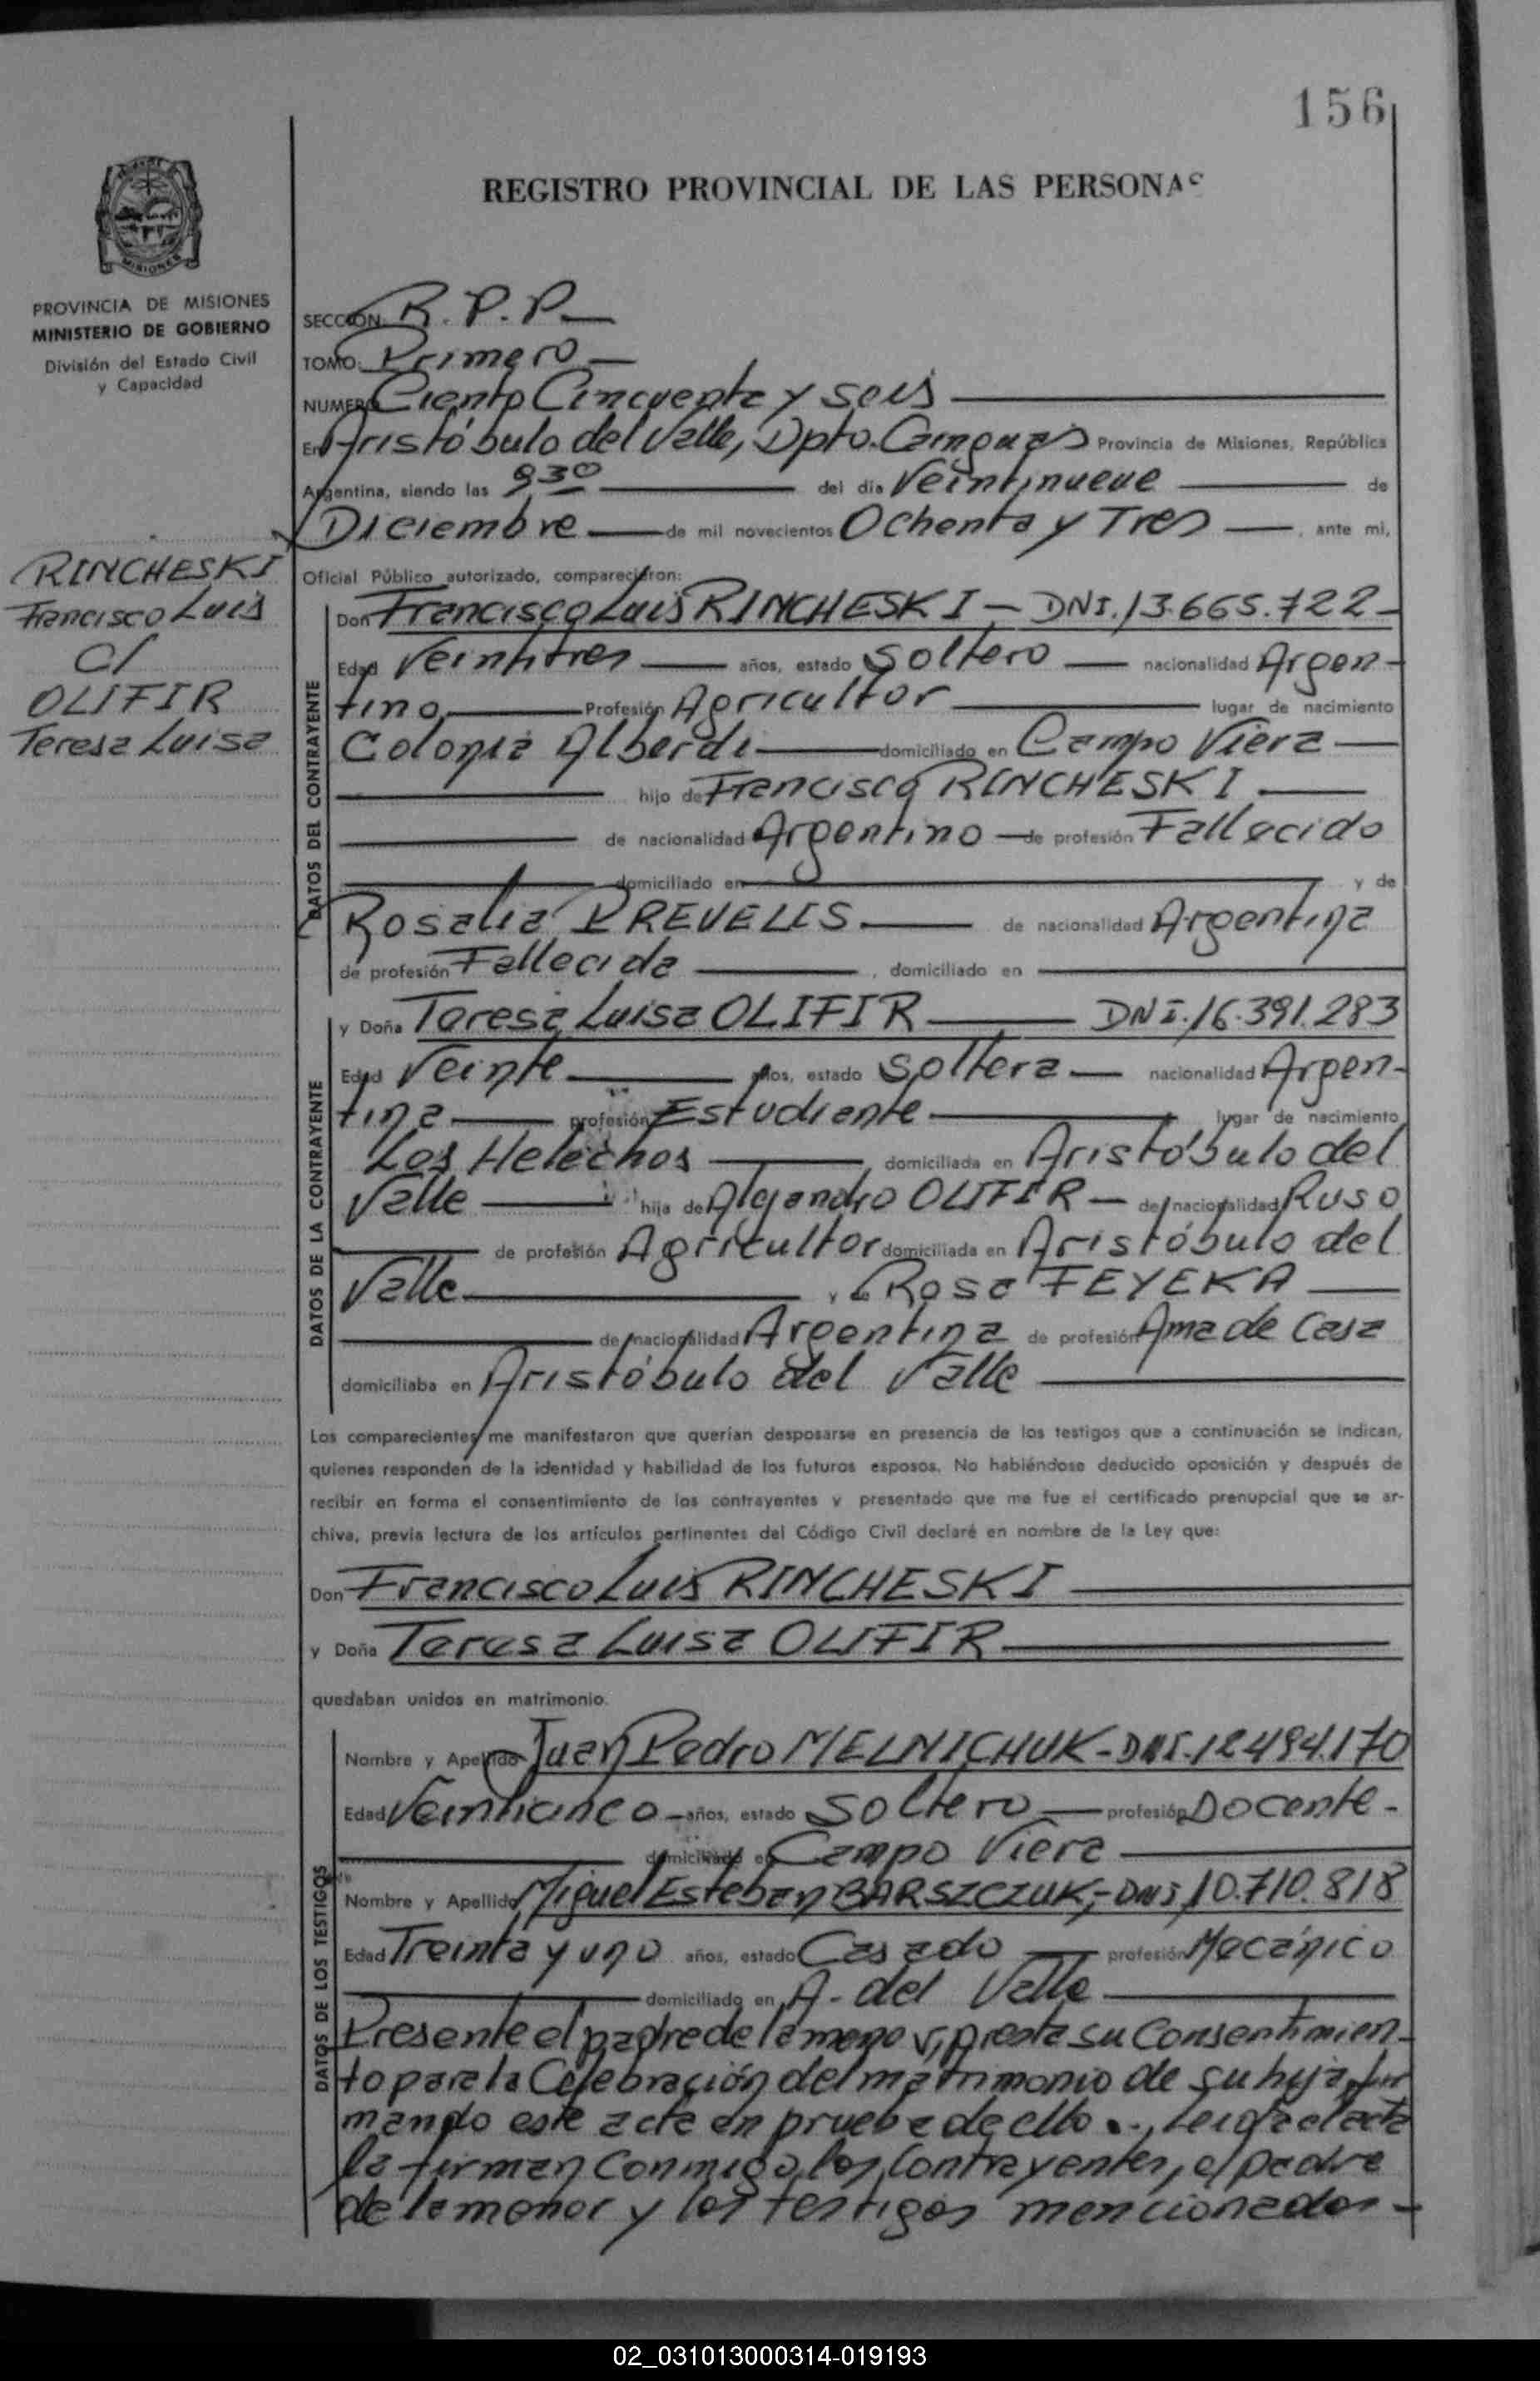 156
REGISTRO PROVINCIAL DE LAS PERSONAS
MISIONES
PROVINCIA DE MISIONES
MINISTERIO DE GOBIERNO
División del Estado Civil
y Capacidad
SECCION: R.P.P.
TOMO: Primero
NUMERO Ciento Cincuenta y seis
En Aristóbulo del Valle, Dpto. Cainguás Provincia de Misiones, República
Argentina, siendo las 9,30 del día Veintinueve de
Diciembre de mil novecientos Ochenta y Tres, ante mi,
RINCHESKI
Francisco Luis
c/
OLIFIR
Teresa Luisa
Oficial Público autorizado, comparecieron:
DATOS DEL CONTRAYENTE
Don Francisco Luis RINCHESKI - DNI. 13.665.722-
Edad Veintitres años, estado Soltero nacionalidad Argen-
tino, Profesión Agricultor lugar de nacimiento
Colonia Alberdi domiciliado en Campo Viera
hijo de Francisco RINCHESKI
de nacionalidad Argentino de profesión Fallecido
domiciliado en y de
Rosalia PREVELIS de nacionalidad Argentina
de profesión Fallecida, domiciliado en
DATOS DE LA CONTRAYENTE
y Doña Teresa Luisa OLIFIR DNI. 16.391.283
Edad Veinte años, estado Soltera nacionalidad Argen-
tina profesión Estudiante lugar de nacimiento
Los Helechos, domiciliada en Aristóbulo del
Valle hija de Alejandro OLIFIR - de nacionalidad Ruso
de profesión Agricultor domiciliada en Aristóbulo del
Valle, y de Rosa FEYEKA
de nacionalidad Argentina de profesión Ama de Casa
domiciliaba en Aristóbulo del Valle
Los comparecientes me manifestaron que querían desposarse en presencia de los testigos que a continuación se indican,
quienes responden de la identidad y habilidad de los futuros esposos. No habiéndose deducido oposición y después de
recibir en forma el consentimiento de los contrayentes y presentado que me fue el certificado prenupcial que se ar-
chiva, previa lectura de los artículos pertinentes del Código Civil declaré en nombre de la Ley que:
Don Francisco Luis RINCHESKI
y Doña Teresa Luisa OLIFIR
quedaban unidos en matrimonio.
DATOS DE LOS TESTIGOS
Nombre y Apellido Juan Pedro MELNICHUK - DNI. 12.494.170
Edad Veinticinco años, estado Soltero profesión Docente-
domiciliado en Campo Viera
Nombre y Apellido Miguel Esteban BARSZCZUK, - DNI 10.710.818
Edad Treinta y uno años, estado Casado profesión Mecánico
domiciliado en A. del Valle
Presente el padre de la menor, presta su Consentimien-
to para la Celebración del matrimonio de su hija, fir
mando este acta en prueba de ello.. Leida el acta
la firman conmigo, los Contrayentes, el padre
de la menor y los testigos mencionados -
02_031013000314-019193